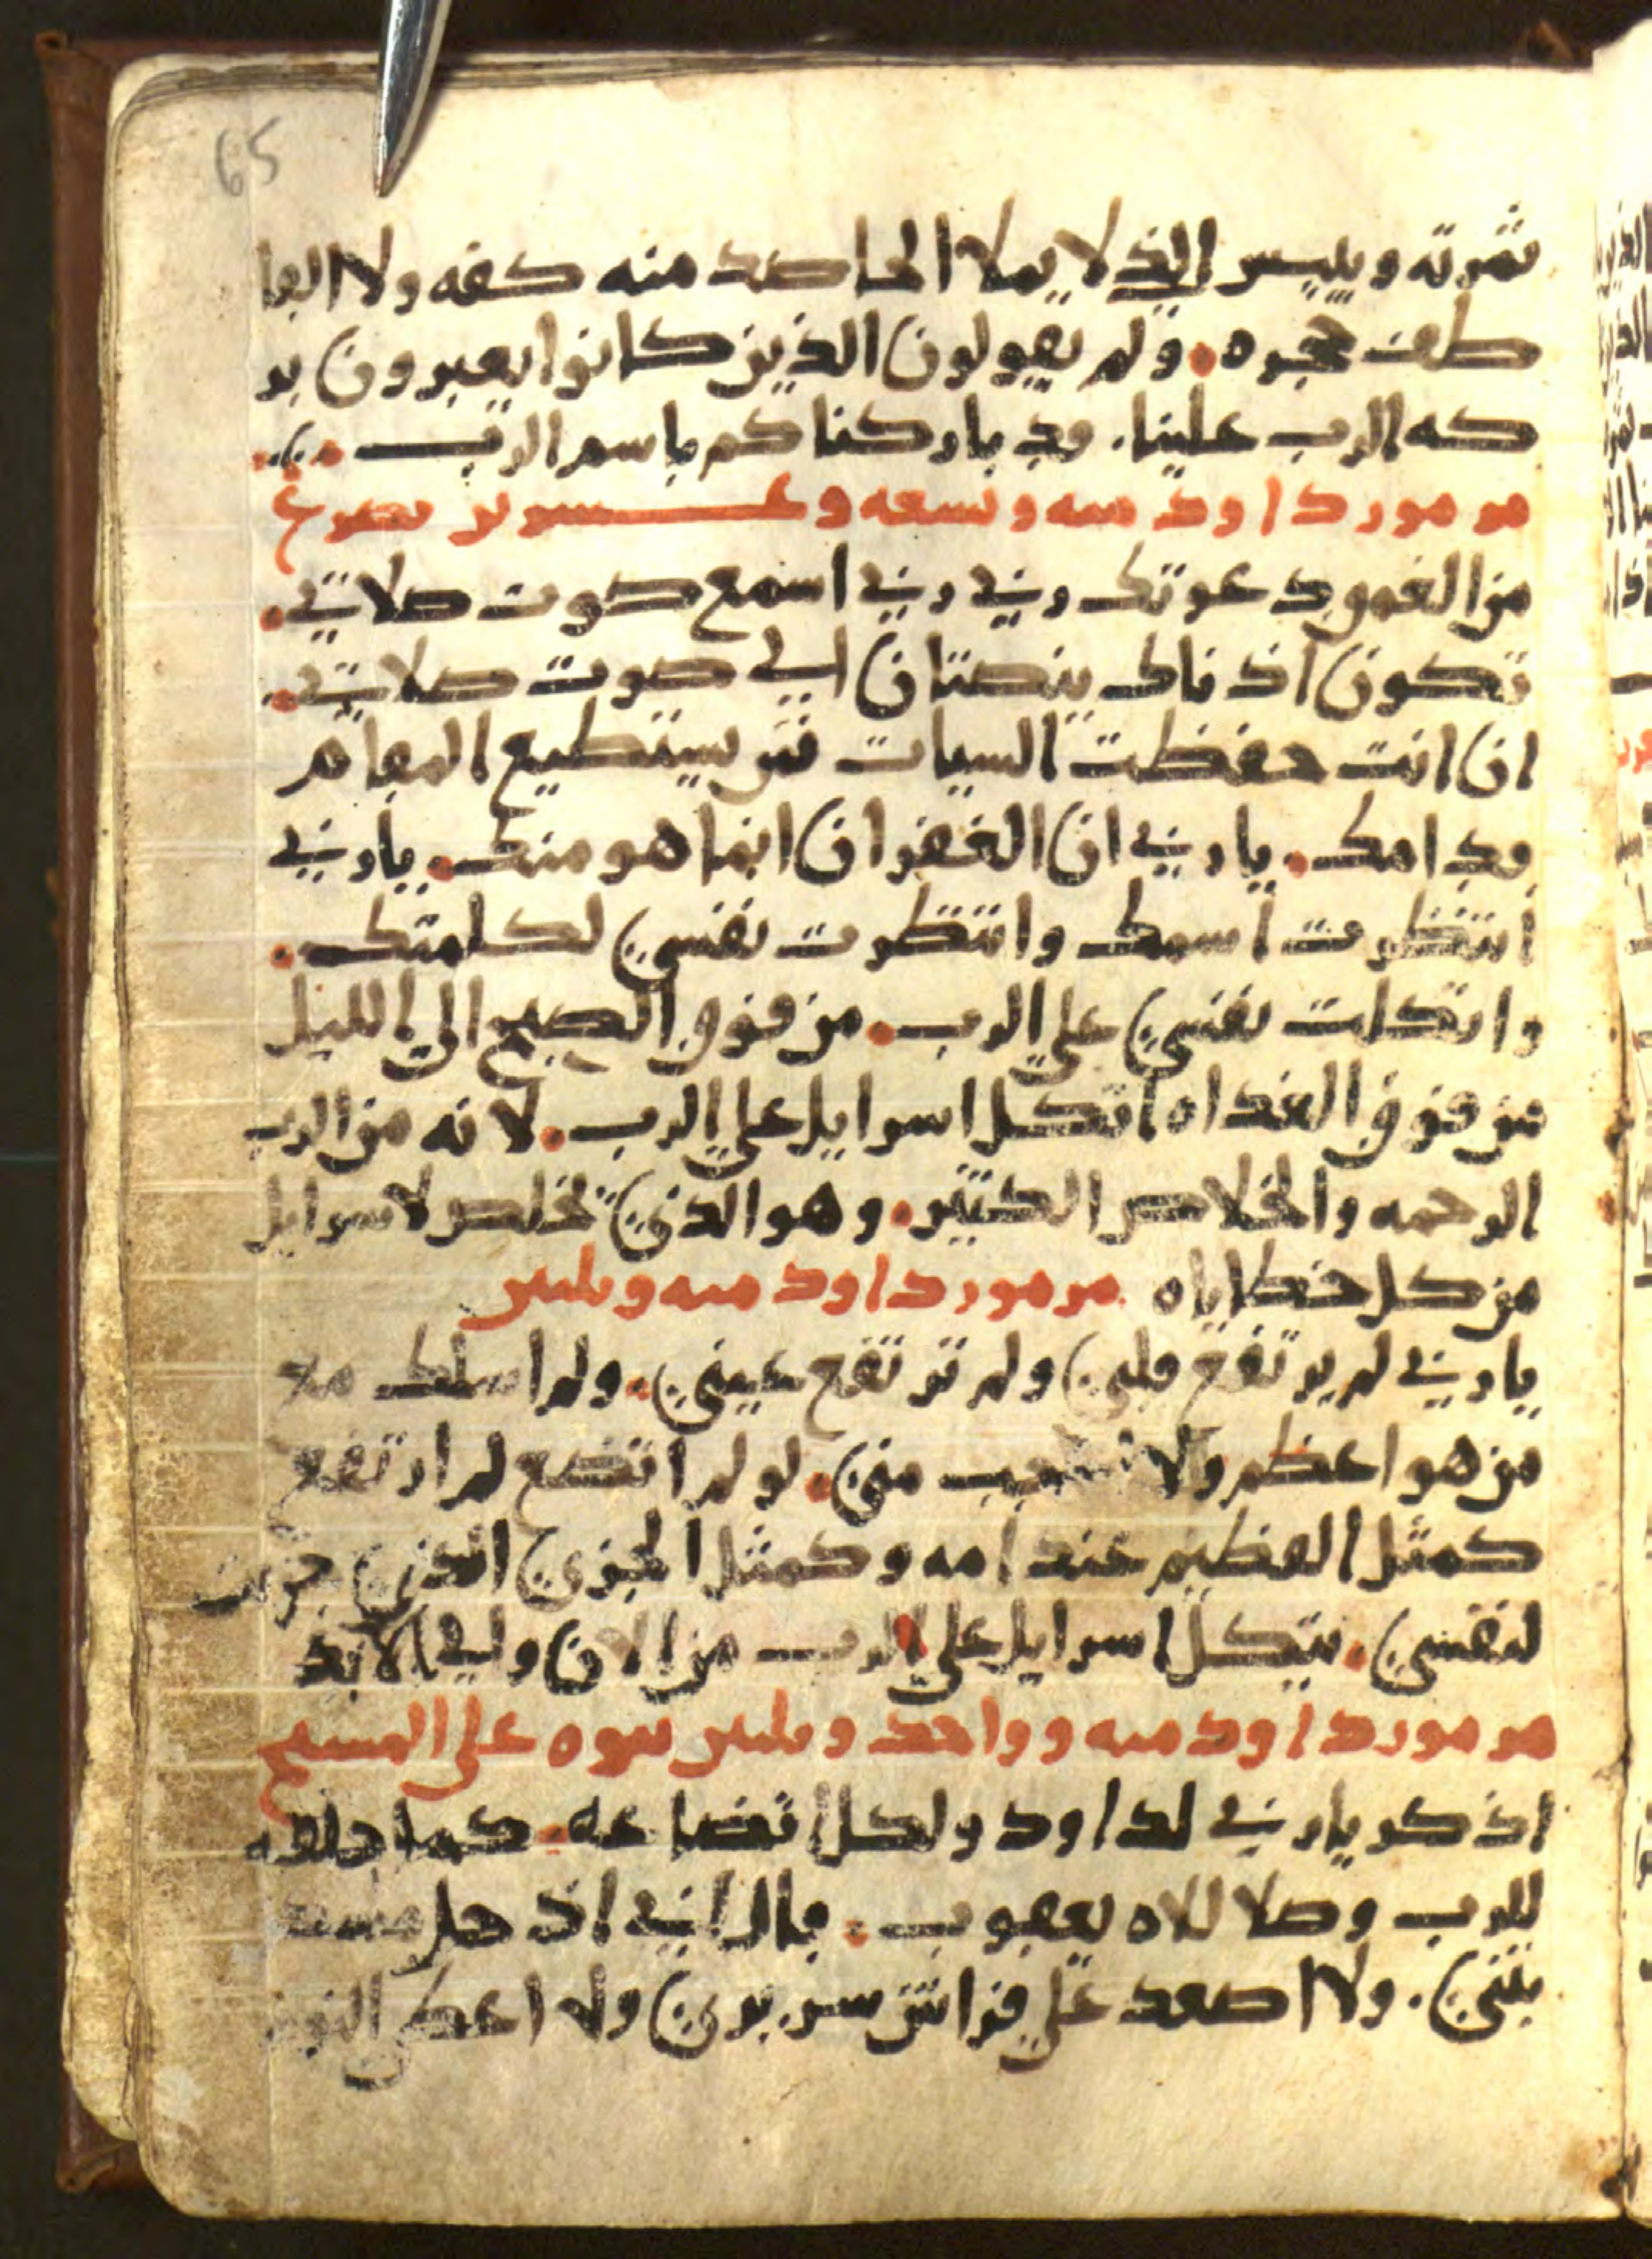 65
ثمرته وييبس الذي لا يملا الحاصد منه كفه ولا القا
طف حجره. ولم يقولون الذين كانوا يعبرون بر
كه الرب علينا. قد باركناكم باسم الرب
مزمور داود ميه وتسعه وعسرين تضرع
من الغموق دعوتك ربي ربي اسمع صوت صلاتي.
تكون اذناك ينصتان الي صوت صلاتي.
ان انت حفظت السيات فمن يستطيع المقام
قدامك. يا ربي ان الغفران انما هو منك. يا ربي
انتظرت اسمك وانتظرت نفسي لكلمتك.
واتكلت نفسي علي الرب. من فوق الصبح الى الليل
من فوق الغداه اتكل اسرايل علي الرب. لانه من الرب
الرحمه والخلاص الكثير. وهو الذي يخلص لاسرايل
من كل خطاياه مزمور داود ميه وثلثين
يا ربي لم يرتفع قلبي ولم ترتفع عيني. ولم اسلك مع
من هو اعظم ولا منى. لو لم اتضع لم ارتفع
كمثل العظيم عند امه وكمثل الجزي الذي جزيت
لنفسي. يتكل اسرايل علي الرب من الان والي الابد
مزمور داود ميه وواحد وثلثين نبوه على المسيح
اذكر يا ربي لداود ولكل اتضاعه. كما حلف
للرب وصلا للاه يعقوب. قال اني اذ حل مسكن
بيتي. ولا اصعد علي فراش سريري ولا اعطي النوم